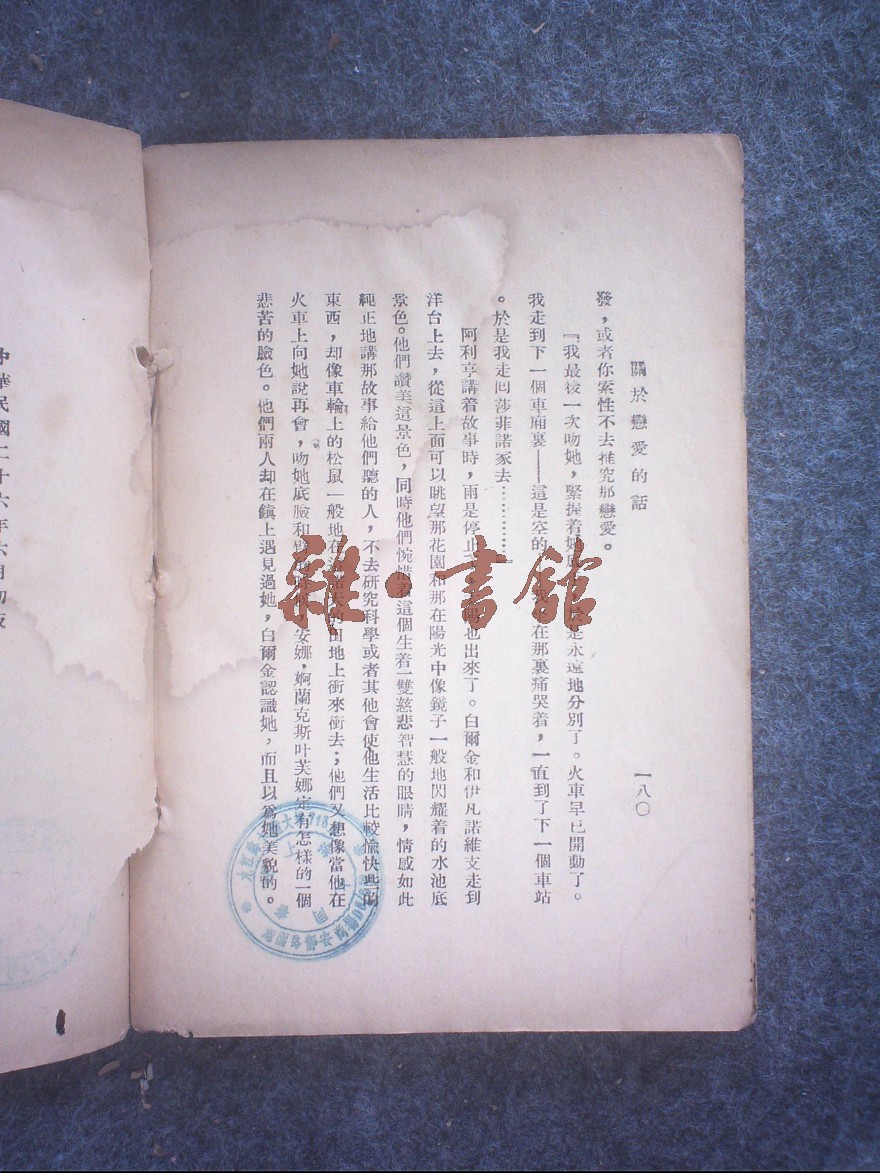 關於戀愛的話
一八〇
發，或者你索性不去推究那戀愛。
『我最後一次吻她，緊握着她底 於是永遠地分別了。火車早已開動了。
我走到下一個車廂裏——這是空的 我 在那裏痛哭着，一直到了下一個車站
。於是我走回莎菲諾家去…………』
阿利亨講着故事時，雨是停止 也出來了。白爾金和伊凡諾維支走到
洋台上去，從這上面可以眺望那花園和那在陽光中像鏡子一般地閃耀着的水池底
景色。他們讚美這景色，同時他們惋惜着這個生着一雙慈悲智慧的眼睛，情感如此
純正地講那故事給他們聽的人，不去研究科學或者其他會使他生活比較愉快些的
東西，却像車輪上的松鼠一般地在 的田地上衝來衝去；他們又想像當他在
火車上向她說再會，吻她底臉和 安娜·婀蘭克斯叶芙娜定有怎樣的一個
悲苦的臉色。他們兩人却在鎮上遇見過她，白爾金認識她，而且以爲她美貌的。
中華民國二十六年六月初版
雜·書館